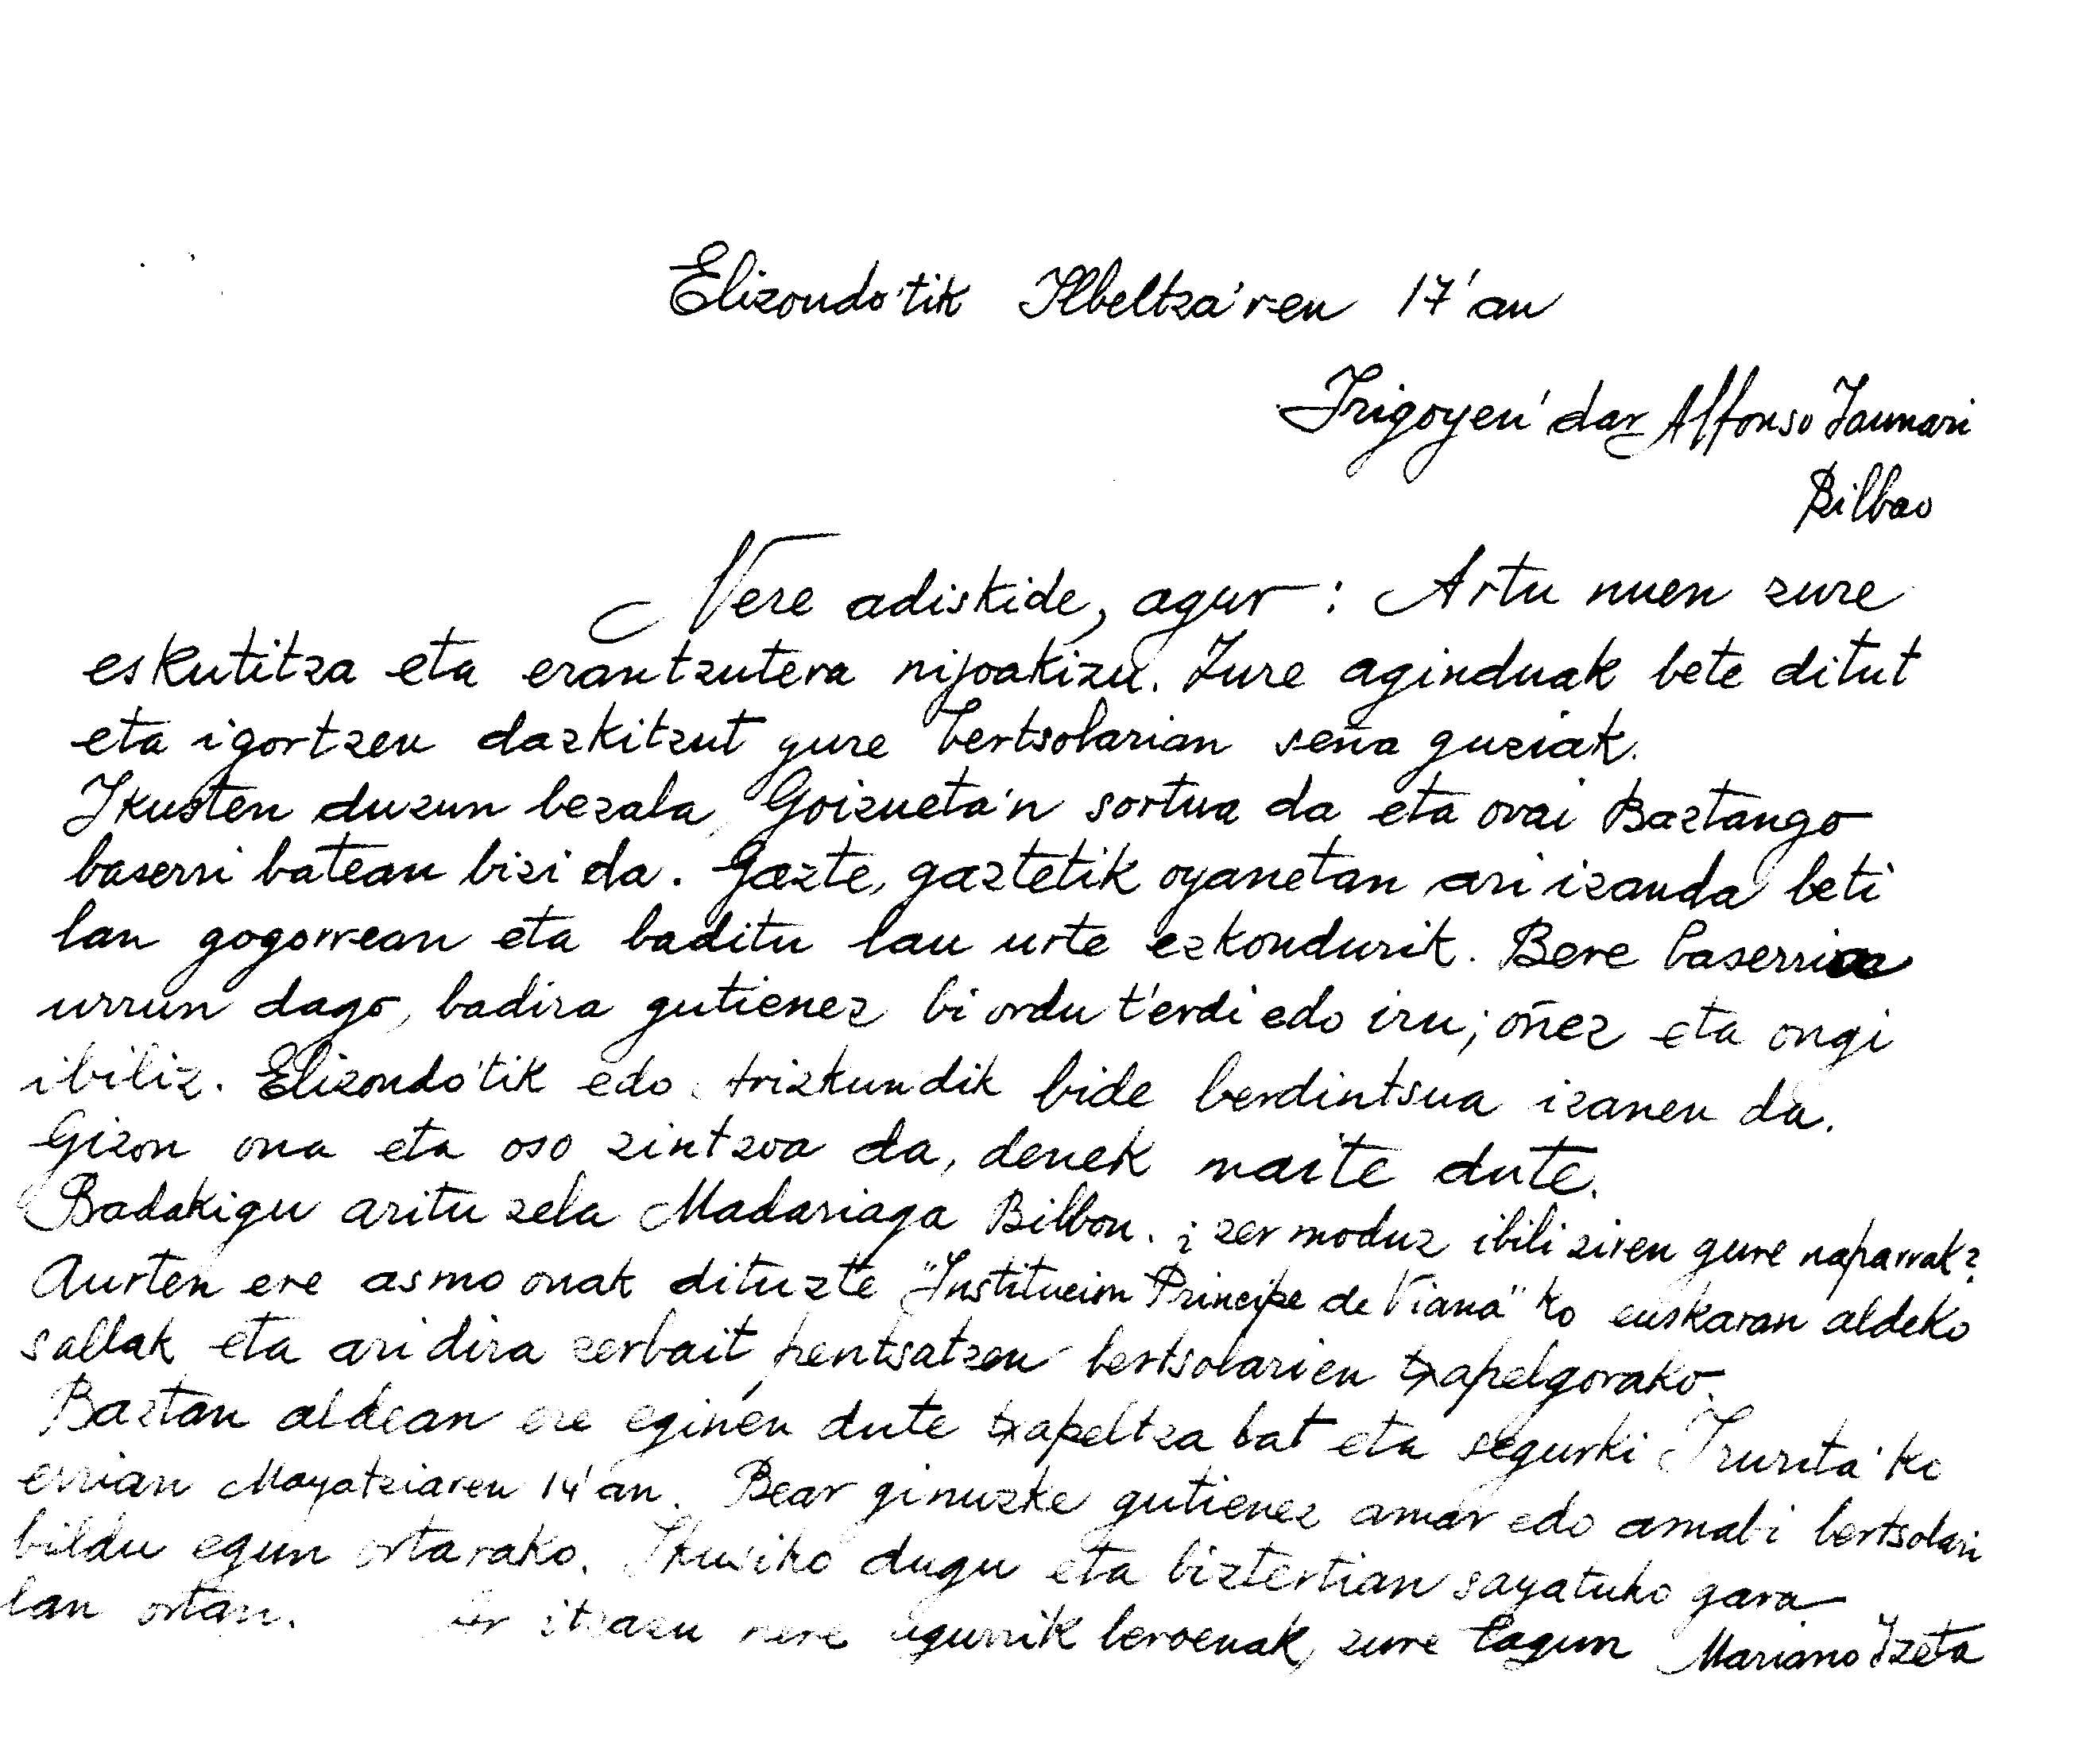 Elizondo'tik Ilbeltza'ren 17'an
Irigoyen'dar Alfonso Jaunari
Bilbao
Nere adiskide, agur: Artu nuen zure
eskutitza eta erantzutera nijoakizu. Zure aginduak bete ditut
eta igortzen dazkitzut gure bertsolarian seña guziak.
Ikusten duzun bezala, Goizueta'n sortua da eta orai Baztango
baserri batean bizi da. Gazte, gaztetik oyanetan ari izanda beti
lan gogorrean eta baditu lau urte ezkondurik. Bere baserria
urrun dago, badira gutienez bi ordu t'erdi edo iru; oñez eta ongi
ibiliz. Elizondo'tik edo Arizkundik bide berdintsua izanen da.
Gizon ona eta oso zintzoa da, denek maite dute.
Badakigu aritu zela Madariaga Bilbon. ¿zer moduz ibili ziren gure naparrak?
Aurten ere asmo onak dituzte "Institucion Principe de Viana"ko euskaran aldeko
sallak eta ari dira zerbait pentsatzen bertsolarien txapelgorako.
Baztan aldean ere eginen dute txapeltza bat eta segurki Irurita'ko
errian Mayatziaren 14'an. Bear ginuzke gutienez amar edo amabi bertsolari
bildu egun ortarako. Ikusiko dugu eta biztertian sayatuko gara
lan ortan. Ar itzazu nere agurrik beroenak, zure lagun Mariano Izeta